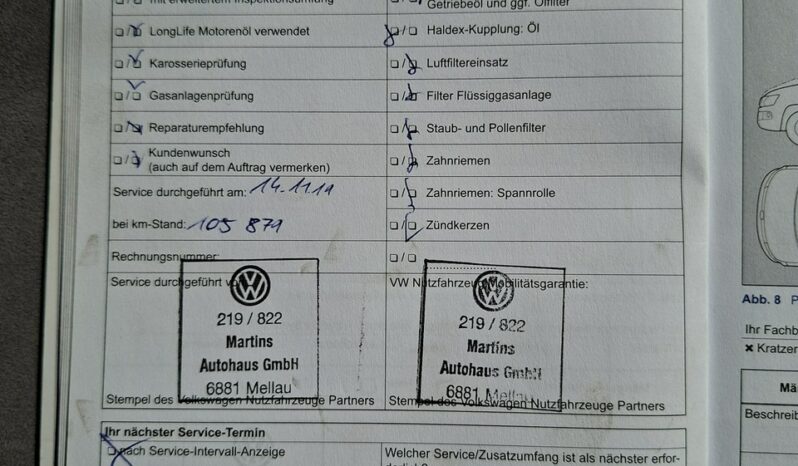 mit erweitertem Inspektionsumfang
Getriebeöl und ggf. Ölfilter
LongLife Motorenöl verwendet
Haldex-Kupplung: Öl
Karosserieprüfung
Luftfiltereinsatz
Gasanlagenprüfung
Filter Flüssiggasanlage
Reparaturempfehlung
Staub- und Pollenfilter
Kundenwunsch
(auch auf dem Auftrag vermerken)
Zahnriemen
Service durchgeführt am: 14.11.19
Zahnriemen: Spannrolle
bei km-Stand: 105 871
Zündkerzen
Rechnungsnummer:
Service durchgeführt von
VW Nutzfahrzeug Mobilitätsgarantie:
219 / 822
Martins
Autohaus GmbH
6881 Mellau
219 / 822
Martins
Autohaus GmbH
6881 Mellau
Stempel des Volkswagen Nutzfahrzeuge Partners
Stempel des Volkswagen Nutzfahrzeuge Partners
Ihr nächster Service-Termin
nach Service-Intervall-Anzeige
Welcher Service/Zusatzumfang ist als nächster erfor-
Abb. 8
Ihr Fachb
× Kratzer
Mä
Beschreib